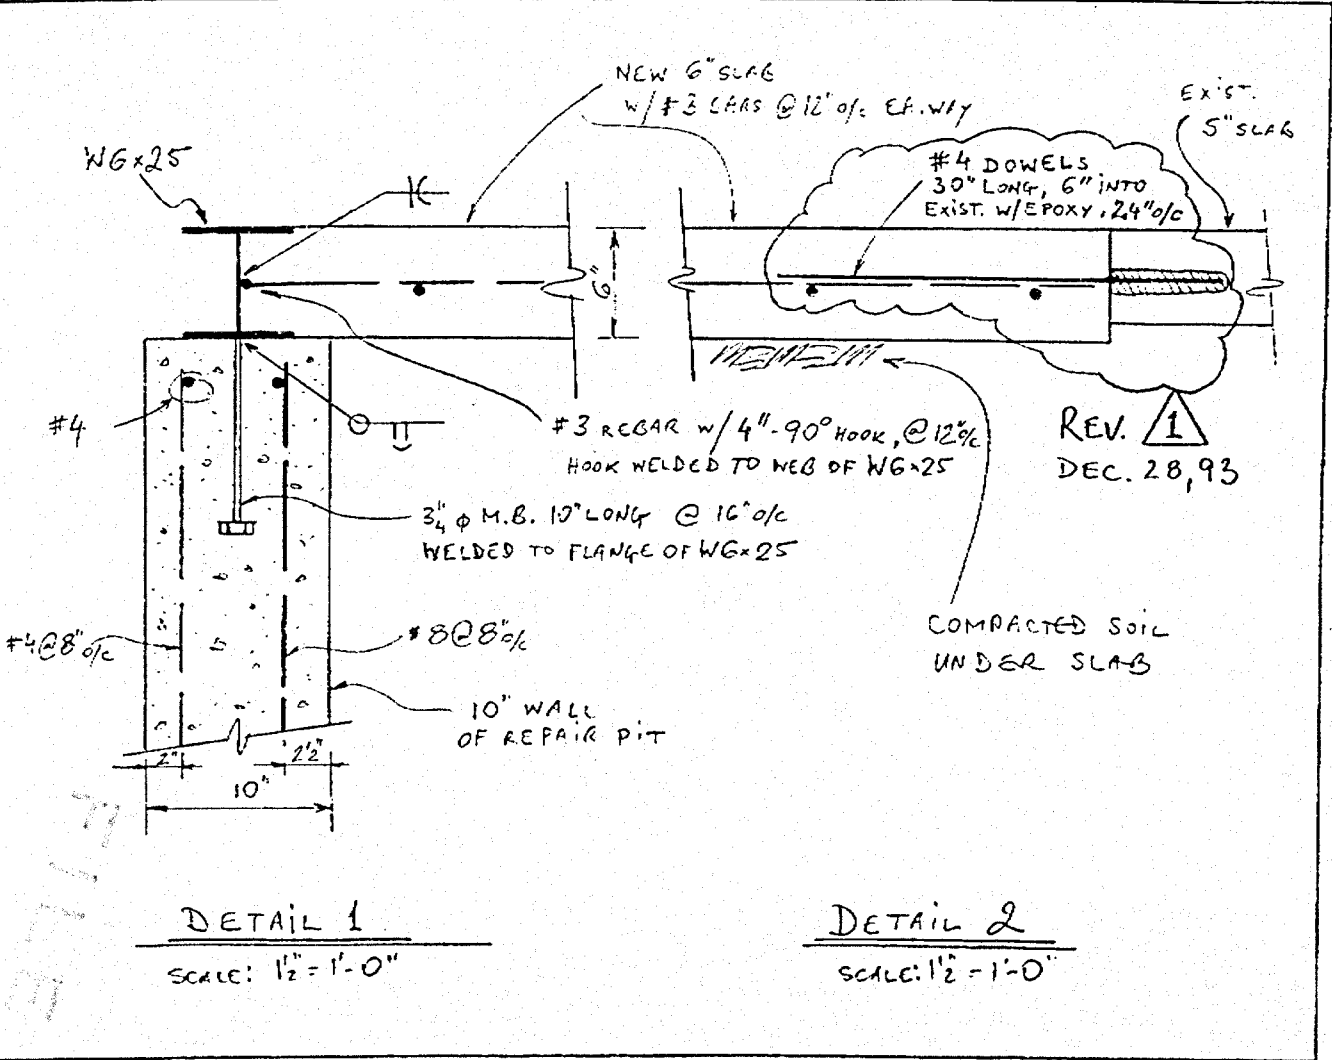 NEW 6" SLAB
W/ #3 BARS @ 12" o/c EA. WAY
EXIST.
5" SLAB
W6×25
#4 DOWELS
30" LONG, 6" INTO
EXIST. W/EPOXY, 24" o/c
6"
#4
#3 REBAR W/ 4"-90° HOOK, @ 12" o/c
HOOK WELDED TO WEB OF W6×25
REV. 1
DEC. 28, 93
3/4" ϕ M.B. 10" LONG @ 16" o/c
WELDED TO FLANGE OF W6×25
#4@8" o/c
#8@8" o/c
COMPACTED SOIL
UNDER SLAB
10" WALL
OF REPAIR PIT
2"
2½"
10"
DETAIL 1
SCALE: 1½" = 1'-0"
DETAIL 2
SCALE: 1½" = 1'-0"